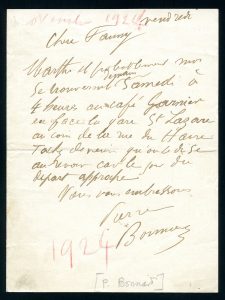 1924 vendredi
Chère Fanny
Marthe et probablement moi
se trouveront demain Samedi à
4 heures au café Garnier
en face la gare St Lazare
au coin de la rue du Havre
de se
au revoir car le jour du
départ approche
Nous vous embrassons
Pierre
Bonnard
1924
[P. Bonnard]